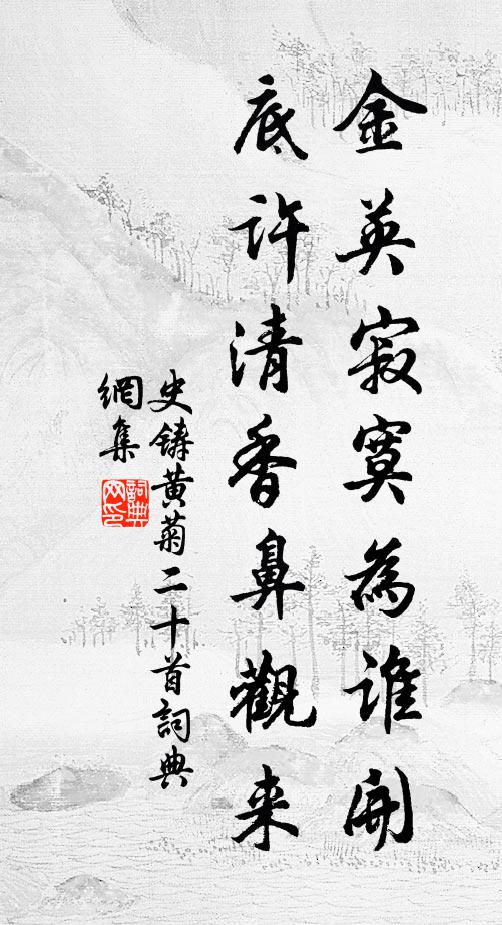 金英寂寞為誰開
底許清香鼻觀来
史鑄黄菊二十首詞典
網集
詞典
网印